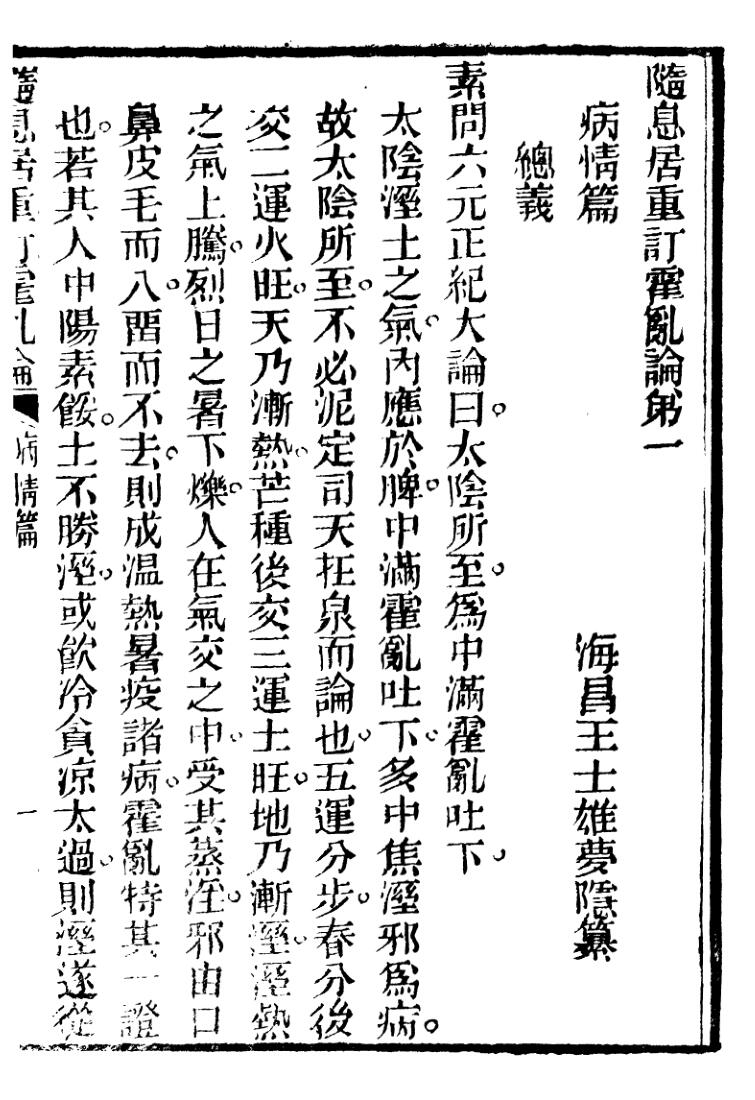 隨息居重訂霍亂論第一
病情篇
海昌王士雄夢隱纂
總義
素問六元正紀大論曰。太陰所至。爲中滿霍亂吐下。
太陰溼土之氣。內應於脾。中滿霍亂吐下。多中焦溼邪爲病。
故太陰所至。不必泥定司天在泉而論也。五運分步。春分後
交二運火旺。天乃漸熱。芒種後交三運土旺。地乃漸溼。溼熱
之氣上騰。烈日之暑下爍。人在氣交之中。受其蒸淫。邪由口
鼻皮毛而入。畱而不去。則成温熱暑疫諸病。霍亂特其一證
也。若其人中陽素餒。土不勝溼。或飲冷貪凉太過。則溼遂從
隨息居重訂霍亂論
病情篇
一